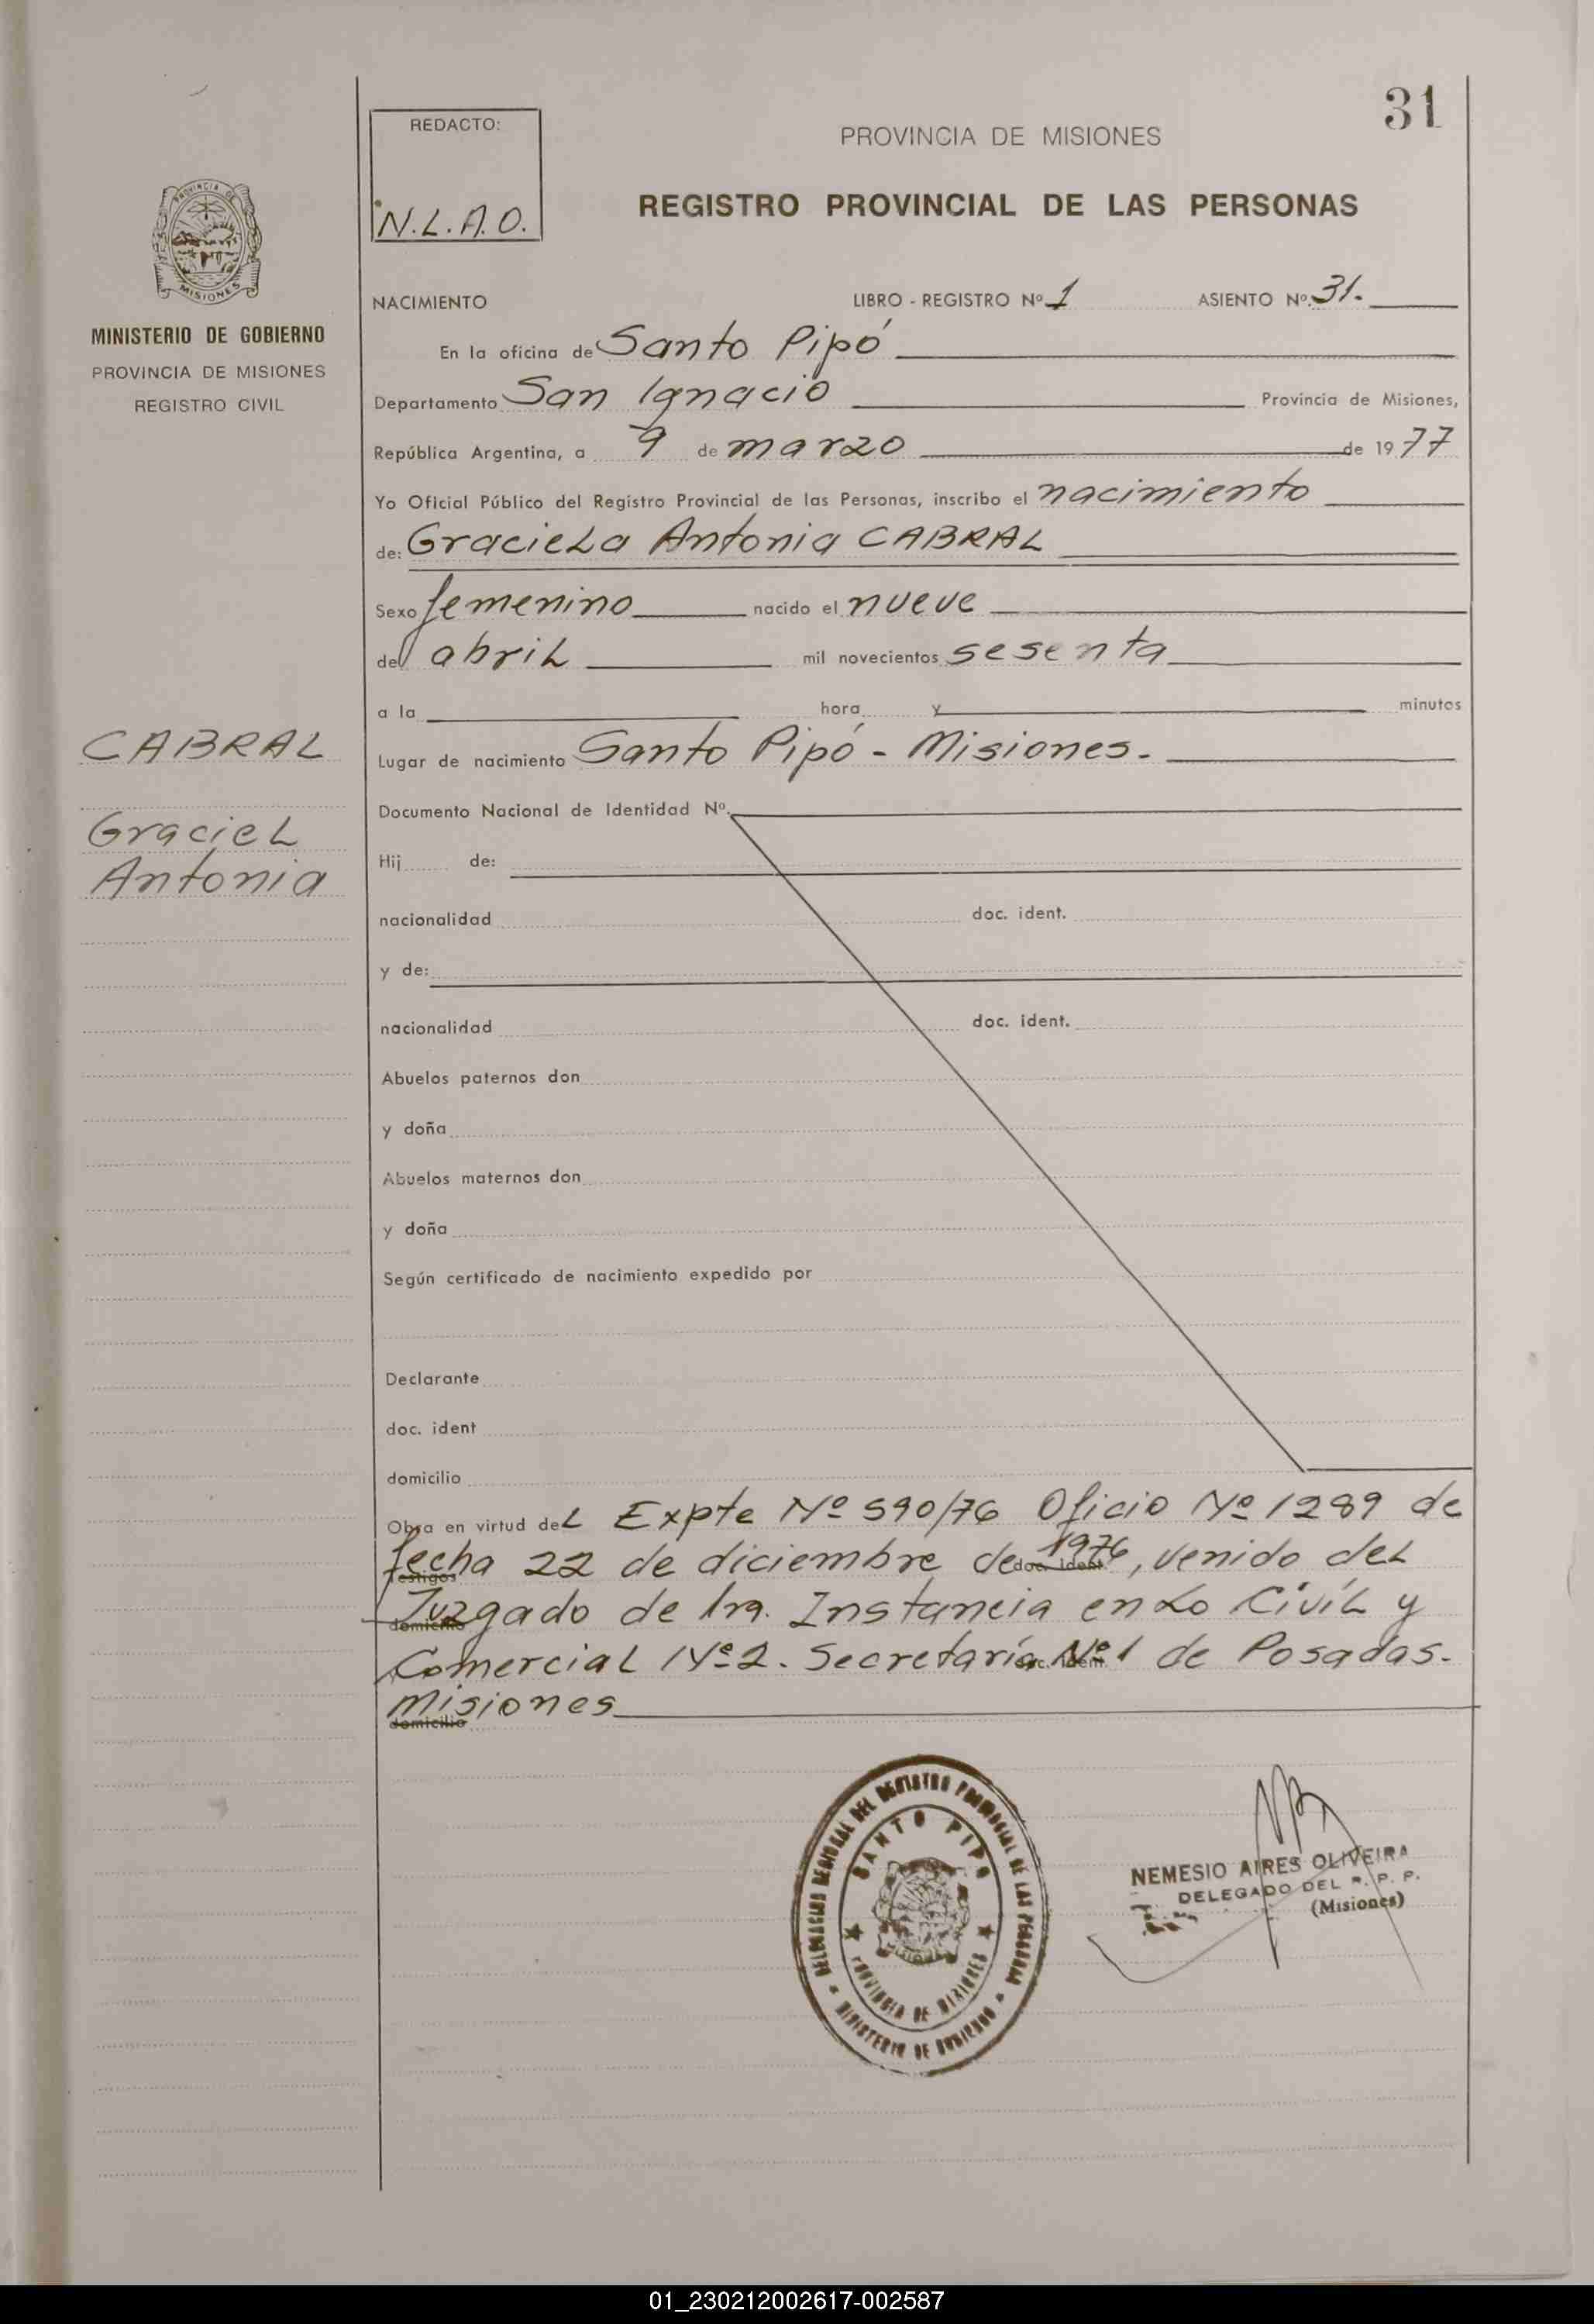 31
REDACTO:
N.L.A.O.
PROVINCIA DE MISIONES
REGISTRO PROVINCIAL DE LAS PERSONAS
PROVINCIA DE
MISIONES
MINISTERIO DE GOBIERNO
PROVINCIA DE MISIONES
REGISTRO CIVIL
NACIMIENTO LIBRO - REGISTRO Nº 1 ASIENTO Nº. 31.
En la oficina de Santo Pipó
Departamento San Ignacio Provincia de Misiones,
República Argentina, a 9 de marzo de 1977
Yo Oficial Público del Registro Provincial de las Personas, inscribo el nacimiento
de: Graciela Antonia CABRAL
Sexo femenino nacido el nueve
de abril mil novecientos sesenta
a la hora y minutos
CABRAL
Graciel
Antonia
Lugar de nacimiento Santo Pipó - Misiones.
Documento Nacional de Identidad Nº.
Hij de:
nacionalidad doc. ident.
y de:
nacionalidad doc. ident.
Abuelos paternos don
y doña
Abuelos maternos don
y doña
Según certificado de nacimiento expedido por
Declarante
doc. ident
domicilio
Obra en virtud del Expte Nº 590/76 Oficio Nº 1289 de
fecha 22 de diciembre de 1976, venido del
Juzgado de 1ra. Instancia en lo Civil y
Comercial Nº 2. Secretaría Nº 1 de Posadas.
Misiones
DELEGACION REGIONAL DEL REGISTRO PROVINCIAL DE LAS PERSONAS
SANTO PIPO
PROVINCIA DE MISIONES
MINISTERIO DE GOBIERNO
NEMESIO AIRES OLIVEIRA
DELEGADO DEL R. P. P.
(Misiones)
01_230212002617-002587